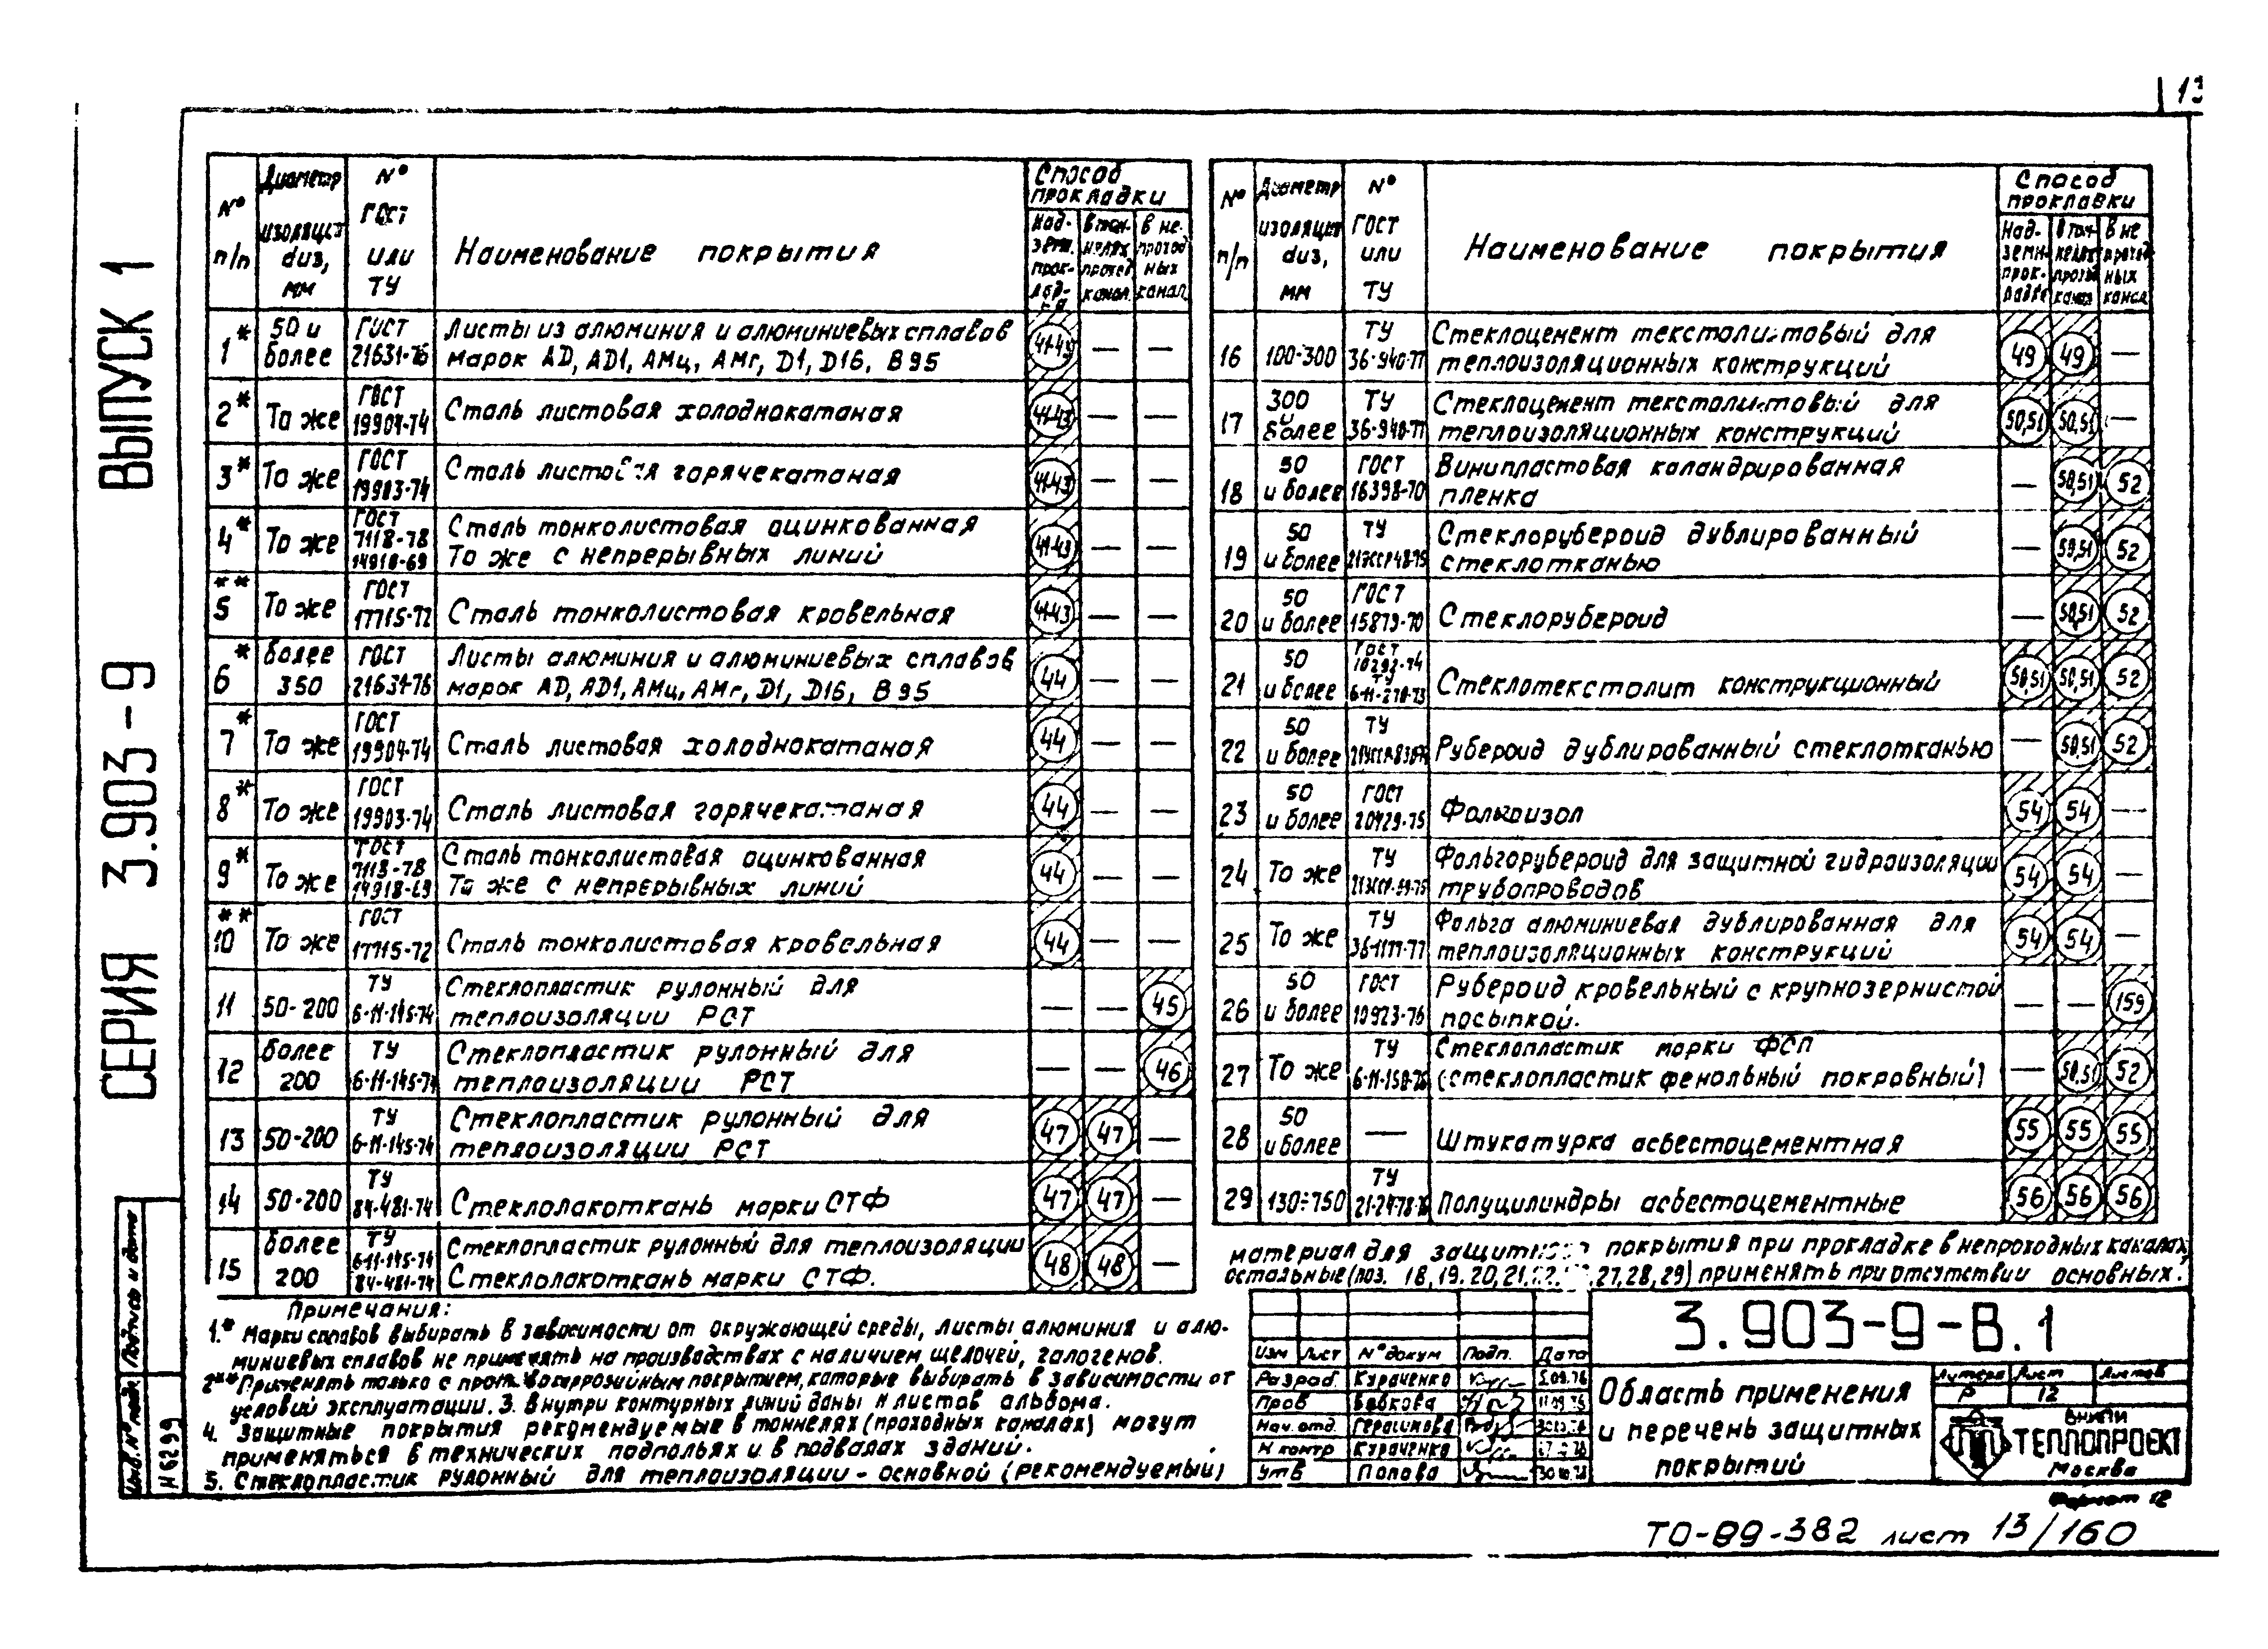 13
СЕРИЯ 3.903-9 ВЫПУСК 1
№ п/п
Диаметр изоляции, мм
№ ГОСТ или ТУ
Наименование покрытия
Способ прокладки
в не-
1* 50 и более ГОСТ 21631-76 Листы из алюминия и алюминиевых сплавов
марок АД, АД1, АМц, АМг, Д1, Д16, В95 — —
2* То же ГОСТ 19904-74 Сталь листовая холоднокатаная 41-43 — —
3* То же ГОСТ 19903-74 Сталь листовая горячекатаная 41-43 — —
4* То же ГОСТ 7118-78 14918-69 Сталь тонколистовая оцинкованная
То же с непрерывных линий 41-43 — —
5** То же ГОСТ 17715-72 Сталь тонколистовая кровельная 41-43 — —
6* более 350 ГОСТ 21631-76 Листы алюминия и алюминиевых сплавов
марок АД, АД1, АМц, АМг, Д1, Д16, В95 44 — —
7* То же ГОСТ 19904-74 Сталь листовая холоднокатаная 44 — —
8* То же ГОСТ 19903-74 Сталь листовая горячекатаная 44 — —
9* То же ГОСТ 7118-78 14918-69 Сталь тонколистовая оцинкованная
То же с непрерывных линий 44 — —
10** То же ГОСТ 17715-72 Сталь тонколистовая кровельная 44 — —
11 50-200 ТУ 6-11-145-74 Стеклопластик рулонный для
теплоизоляции РСТ — — 45
12 более 200 ТУ 6-11-145-74 Стеклопластик рулонный для
теплоизоляции РСТ — — 46
13 50-200 ТУ 6-11-145-74 Стеклопластик рулонный для
теплоизоляции РСТ 47 47 —
14 50-200 ТУ 84-481-74 Стеклолакоткань марки СТФ 47 47 —
15 более 200 ТУ 6-11-145-74 84-481-74 Стеклопластик рулонный для теплоизоляции
Стеклолакоткань марки СТФ. 48 48 —
№ п/п
Диаметр изоляции, мм
№ ГОСТ или ТУ
Наименование покрытия
Способ прокладки
16 100-300 ТУ 36-940-77 Стеклоцемент текстолитовый для
теплоизоляционных конструкций 49 49 —
17 300 и более ТУ 36-940-77 Стеклоцемент текстолитовый для
теплоизоляционных конструкций 50,51 50,51 —
18 50 и более ГОСТ 16398-70 Винипластовая каландрированная
пленка — 50,51 52
19 50 и более ТУ Стеклорубероид дублированный
стеклотканью — 50,51 52
20 50 и более ГОСТ 15879-70 Стеклорубероид — 50,51 52
21 50 и более ГОСТ 10292-74 ТУ Стеклотекстолит конструкционный 50,51 50,51 52
22 50 и более ТУ Рубероид дублированный стеклотканью — 50,51 52
23 50 и более ГОСТ 20429-75 Фольгоизол 54 54 —
24 То же ТУ Фольгорубероид для защитной гидроизоляции
трубопроводов 54 54 —
25 То же ТУ 36-1177-77 Фольга алюминиевая дублированная для
теплоизоляционных конструкций 54 54 —
26 50 и более ГОСТ 10923-76 Рубероид кровельный с крупнозернистой
посыпкой. — — 159
27 То же ТУ Стеклопластик марки ФСП
(стеклопластик фенольный покровный) — 50,51 52
28 50 и более — Штукатурка асбестоцементная 55 55 55
29 130÷750 ТУ Полуцилиндры асбестоцементные 56 56 56
Примечания:
1.* Марки сплавов выбирать в зависимости от окружающей среды, листы алюминия и алю-
миниевых сплавов не применять на производствах с наличием щелочей, галогенов.
2** Применять только с противокоррозийным покрытием, которые выбирать в зависимости от
условий эксплуатации. 3. Внутри контурных линий даны № листов альбома.
4. Защитные покрытия рекомендуемые в тоннелях (проходных каналах) могут
применяться в технических подпольях и в подвалах зданий.
5. Стеклопластик рулонный для теплоизоляции - основной (рекомендуемый)
материал для защитного покрытия при прокладке в непроходных каналах,
остальные (поз. 18, 19, 20, 21, 27, 28, 29) применять при отсутствии основных.
Изм Лист № докум Подп. Дата
Разраб. Кураченко
Пров Бабкова
Нач. отд. Герасимова
Н контр Кураченко
Утв Попова
3.903-9-В.1
Область применения
и перечень защитных
покрытий
Литера Лист Листов
Р 12
ВНИПИ
ТЕПЛОПРОЕКТ
Москва
Формат 12
Инв. № подл. Подпись и дата
№ 6299
ТО-89-382 лист 13/160